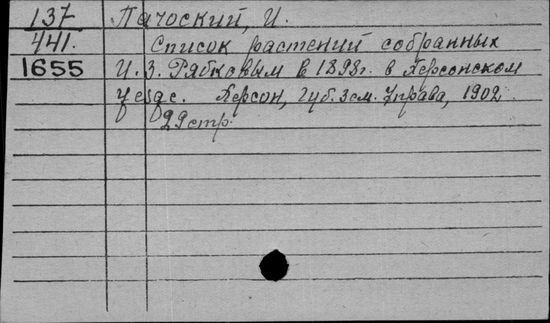 137 Пачоский, И.
441. Список растений собранных
1655 И. З. Рябковым в 1898г. в Херсонском
уезде. Херсон, Губ. Зем. Управа, 1902
29 стр.